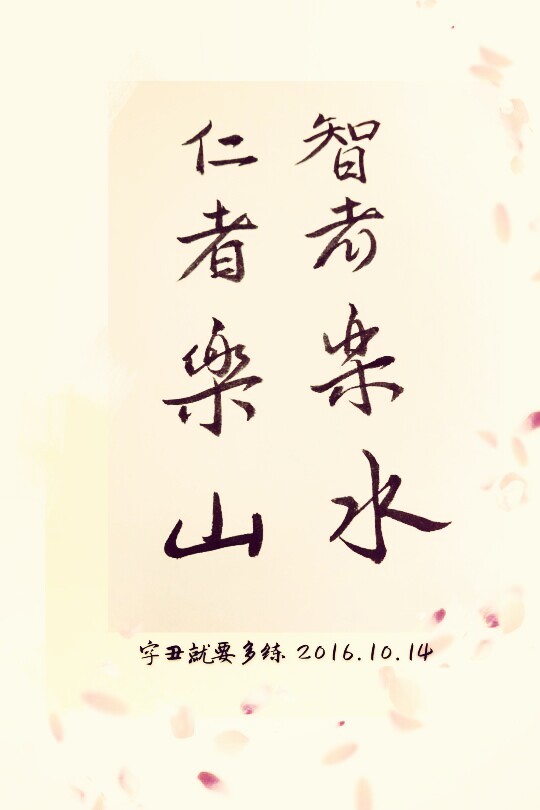 智者樂水
仁者樂山
字丑就要多练 2016.10.14